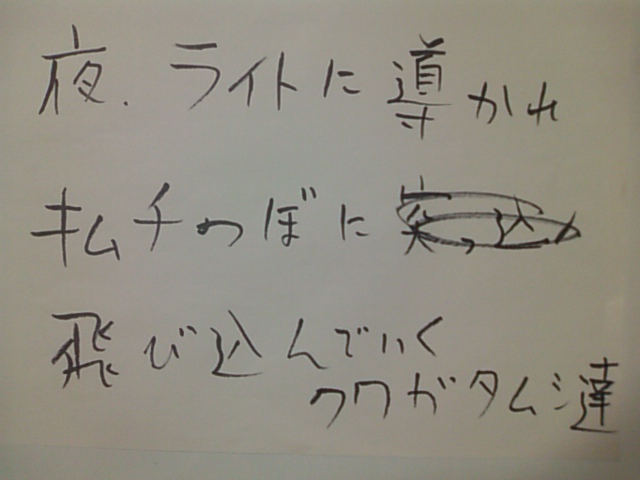 夜、ライトに導かれ
キムチつぼに
飛び込んでいく
クワガタムシ達